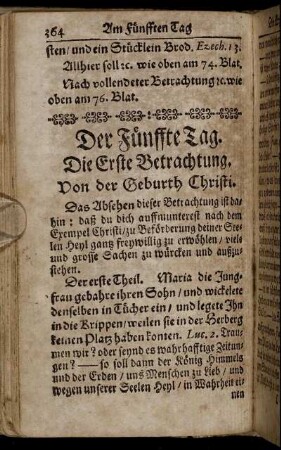 364 Am Fünfften Tag
sten/ und ein Stücklein Brod. Ezech. 13.
Allhier soll ꝛc. wie oben am 74. Blat.
Nach vollendeter Betrachtung ꝛc. wie
oben am 76. Blat.
Der Fünffte Tag.
Die Erste Betrachtung.
Von der Geburth Christi.
Das Absehen dieser Betrachtung ist da-
hin: daß du dich auffmunterest nach dem
Exempel Christi/ zu Beförderung deiner See-
len Heyl gantz freywillig zu erwöhlen/ viele
und grosse Sachen zu würcken und außzu-
stehen.
Der erste Theil. Maria die Jung-
frau gebahre ihren Sohn/ und wickelete
denselben in Tücher ein/ und legete Ihn
in die Krippen/ weilen sie in der Herberg
keinen Platz haben konten. Luc. 2. Trau-
men wir? oder seynd es wahrhafftige Zeitun-
gen? — so soll dann der König Himmels
und der Erden/ uns Menschen zu Lieb/ und
wegen unserer Seelen Heyl/ in Wahrheit ei-
nen